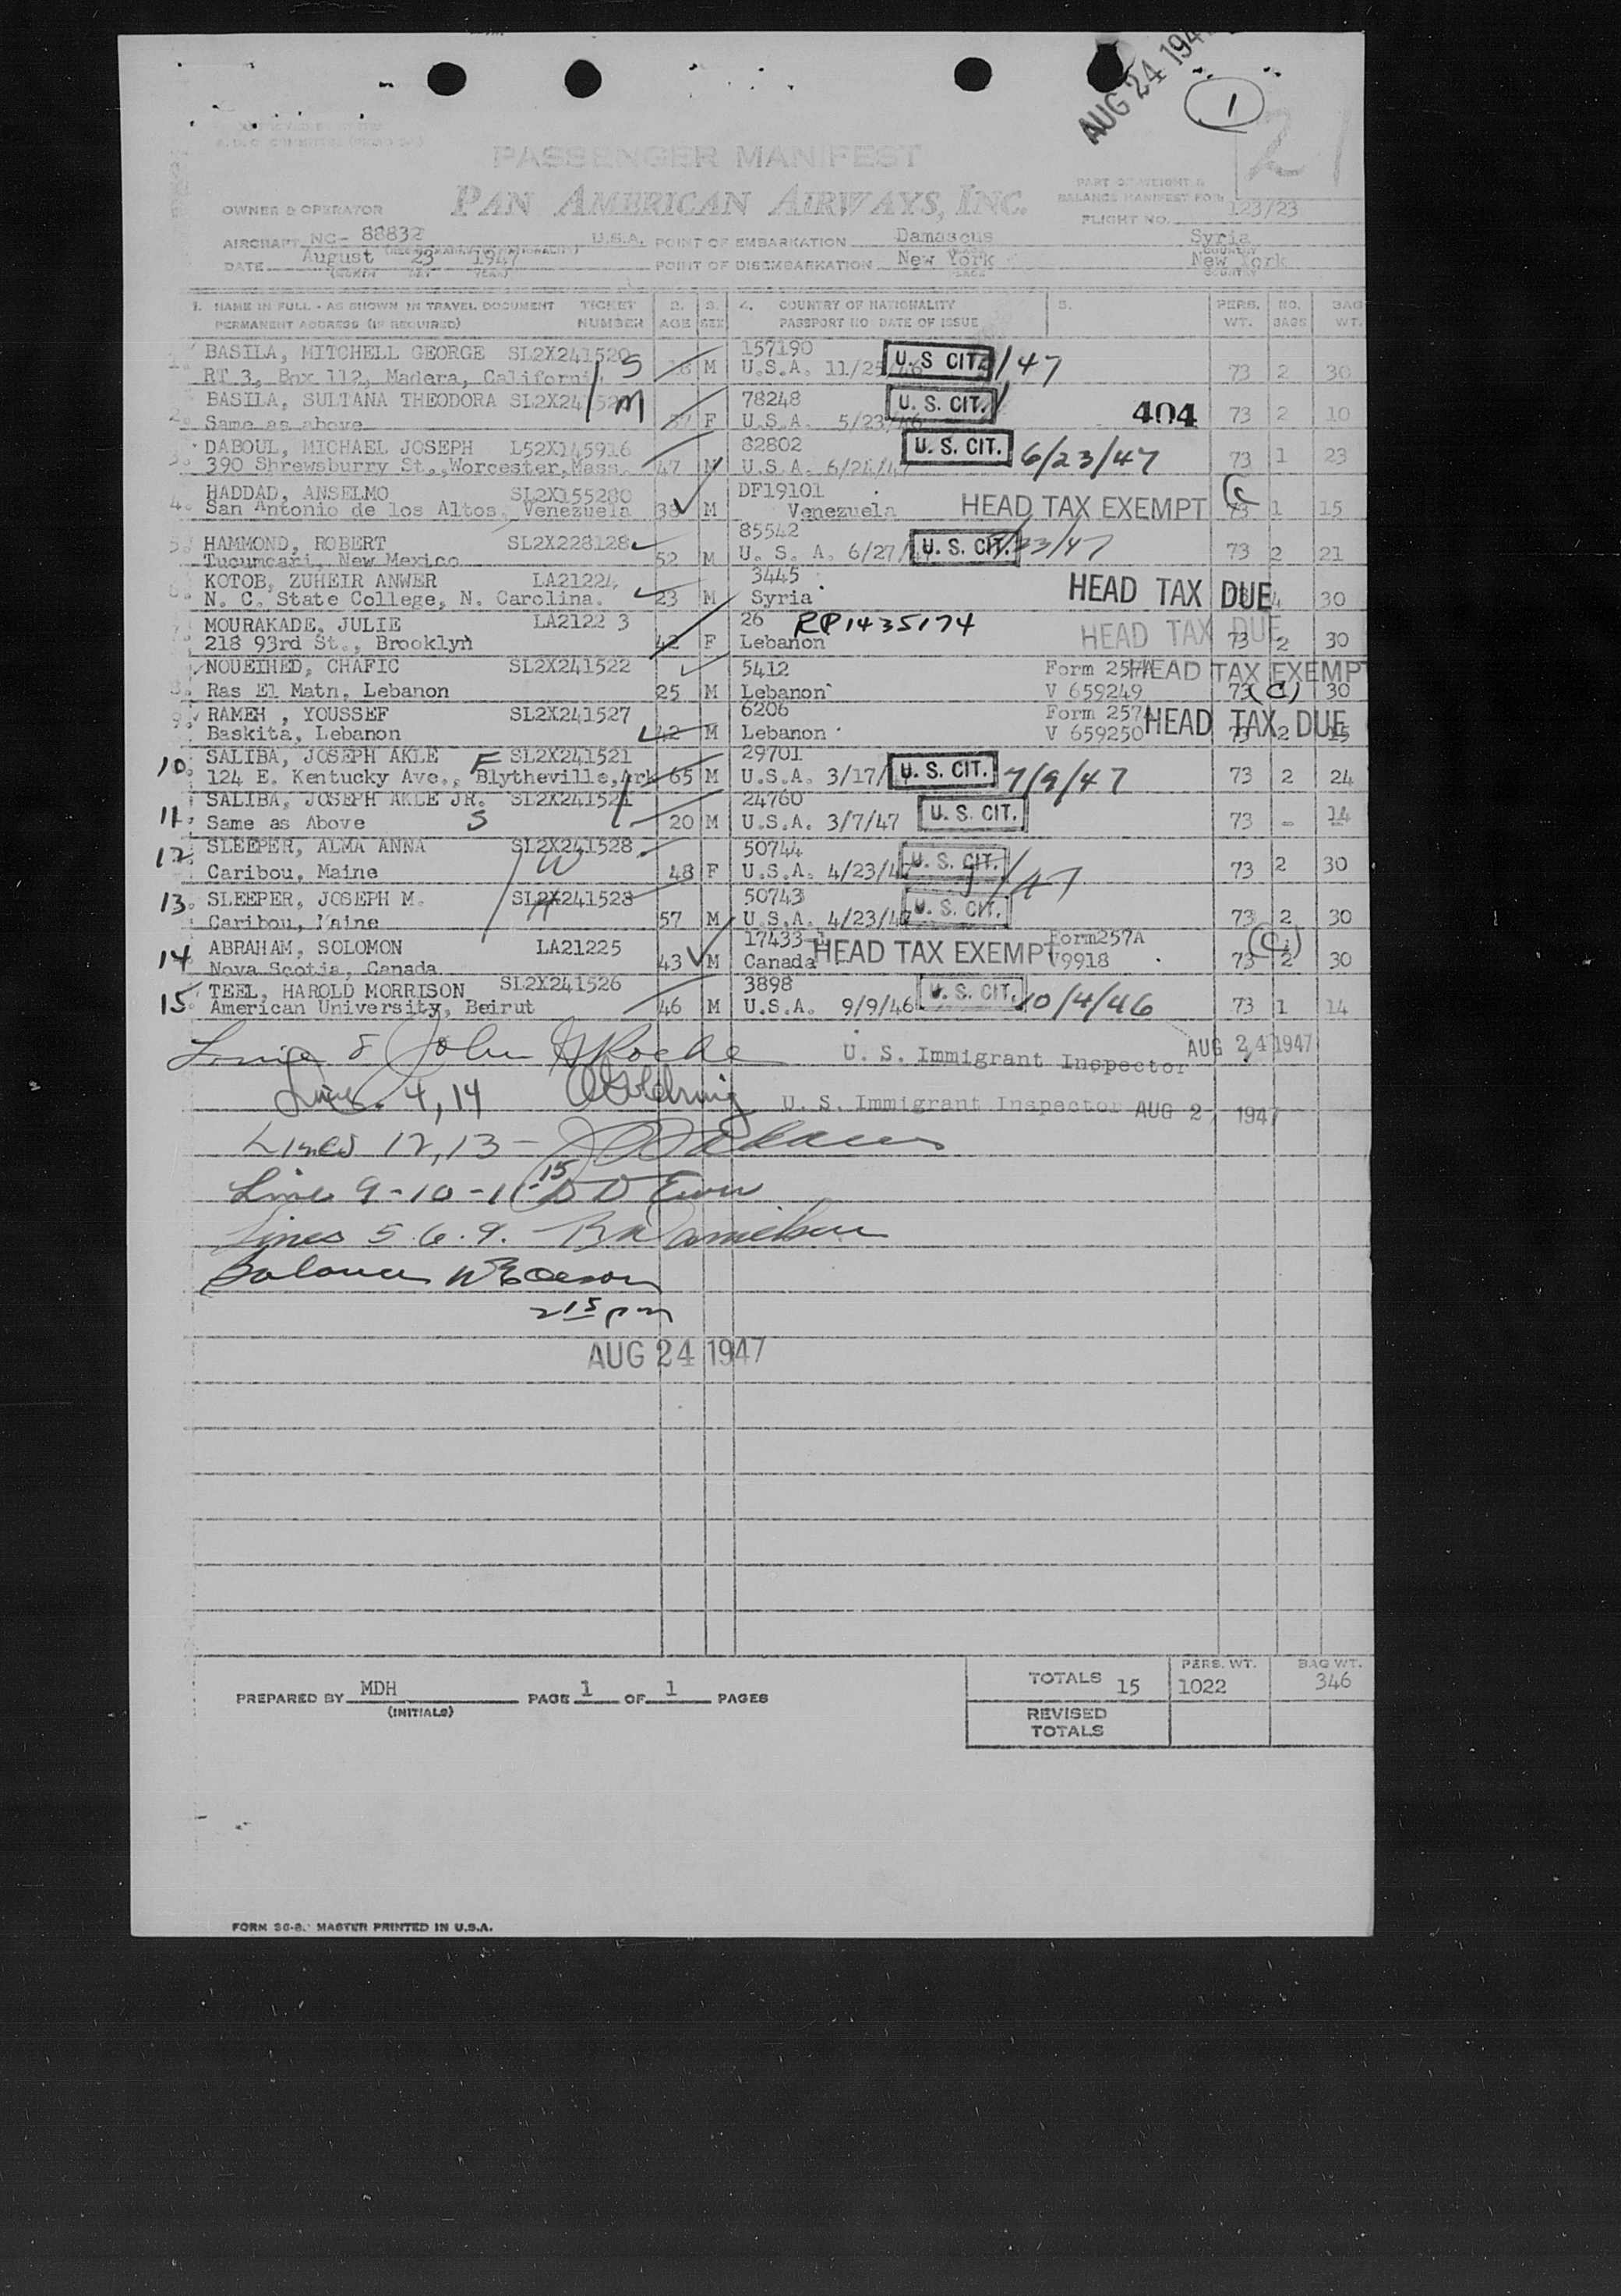 AUG 24 194
1
21
PASSENGER MANIFEST
PAN AMERICAN AIRWAYS, INC.
PART OF WEIGHT &
BALANCE MANIFEST FOR
FLIGHT NO. 123/23
OWNER & OPERATOR
AIRCRAFT NC- 88832 U.S.A. POINT OF EMBARKATION Damascus Syria
DATE August 23 1947 POINT OF DISEMBARKATION New York New York
1. NAME IN FULL - AS SHOWN IN TRAVEL DOCUMENT TICKET 2. 3. 4. COUNTRY OF NATIONALITY 5. PERS. NO. BAG
PERMANENT ADDRESS (IF REQUIRED) NUMBER AGE SEX PASSPORT NO DATE OF ISSUE WT. BAGS WT.
1. BASILA, MITCHELL GEORGE SL2X241520 S 157190 U. S CIT. /47
RT 3, Box 112, Madera, California M U.S.A. 11/25/46 73 2 30
BASILA, SULTANA THEODORA M 78248 U. S. CIT.
2. Same as above F U.S.A. 5/23/46 404 73 2 10
DABOUL, MICHAEL JOSEPH L52X145916 82802 U. S. CIT. 6/23/47
3. 390 Shrewsburry St., Worcester, Mass. 47 M U.S.A. 6/24/47 73 1 23
HADDAD, ANSELMO SL2X155280 DF19101 HEAD TAX EXEMPT (c
4. San Antonio de los Altos, Venezuela 38 M Venezuela 73 1 15
5. HAMMOND, ROBERT SL2X228128 85542 U. S. CIT. /23/47
Tucumcari, New Mexico 52 M U. S. A. 6/27/ 73 2 21
KOTOB, ZUHEIR ANWER LA21224 3445 HEAD TAX DUE
6. N. C. State College, N. Carolina. 23 M Syria 4 30
7. MOURAKADE, JULIE LA2122 3 26 RP1435174 HEAD TAX DUE
218 93rd St., Brooklyn 42 F Lebanon 73 2 30
NOUEIHED, CHAFIC SL2X241522 5412 Form 257 HEAD TAX EXEMPT
8. Ras El Matn, Lebanon 25 M Lebanon V 659249 73 (C) 30
9. RAMEH , YOUSSEF SL2X241527 6206 Form 257 HEAD TAX DUE
Baskita, Lebanon 42 M Lebanon V 659250 73 2 15
10. SALIBA, JOSEPH AKLE F SL2X241521 29701 U. S. CIT. 7/9/47
124 E. Kentucky Ave., Blytheville, Ark 65 M U.S.A. 3/17/ 73 2 24
SALIBA, JOSEPH AKLE JR. SL2X241521 24760 U. S. CIT.
11. Same as Above S 20 M U.S.A. 3/7/47 73 - 14
12. SLEEPER, ALMA ANNA W SL2X241528 50744 U. S. CIT. /47
Caribou, Maine 48 F U.S.A. 4/23/47 73 2 30
13. SLEEPER, JOSEPH M. H SL2X241528 50743 U. S. CIT.
Caribou, Maine 57 M U.S.A. 4/23/47 73 2 30
14. ABRAHAM, SOLOMON LA21225 17433 HEAD TAX EXEMPT Form257A (C)
Nova Scotia, Canada 43 M Canada 79918 73 2 30
15. TEEL, HAROLD MORRISON SL2X241526 3898 U. S. CIT. 10/4/46
American University, Beirut 46 M U.S.A. 9/9/46 73 1 14
Line 8 John Roche U. S. Immigrant Inspector AUG 24 1947
Lines 4, 14 U. S. Immigrant Inspector AUG 2 1947
Lines 12, 13 -
Line 9-10-11-15
Lines 5.6.9.
Balance
2 15 pm
AUG 24 1947
PREPARED BY MDH PAGE 1 OF 1 PAGES
(INITIALS)
TOTALS 15 PERS. WT. 1022 BAG WT. 346
REVISED
TOTALS
FORM 36-B. MASTER PRINTED IN U.S.A.